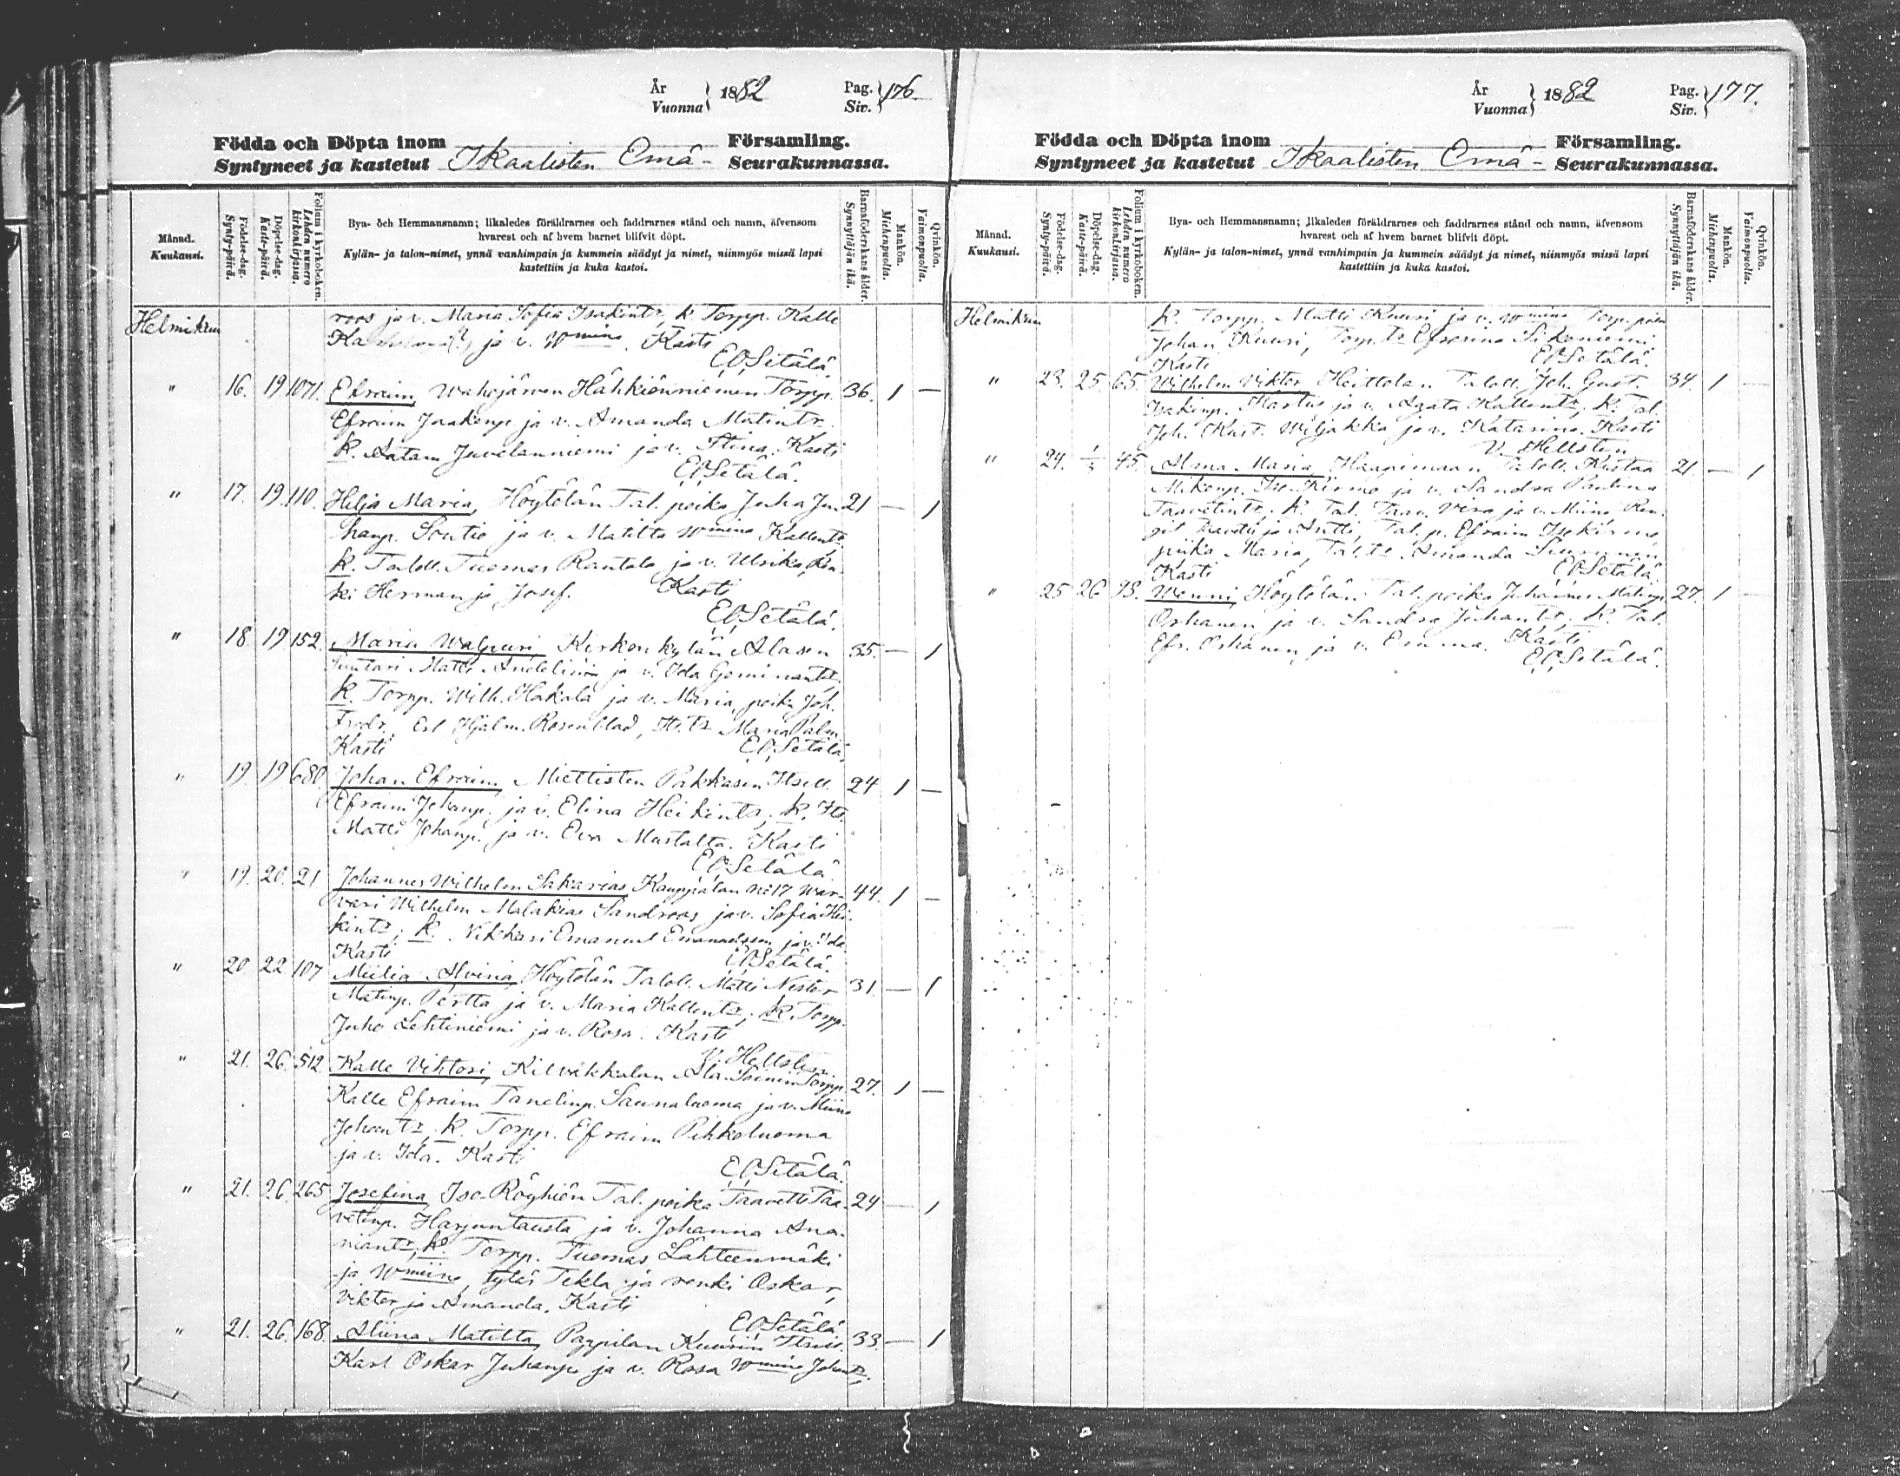 År
Vuonna } 1882
Pag.
Siv. } 176
Födda och Döpta inom
Syntyneet ja kastetut Ikaalisten Emä- Församling.
Seurakunnassa.
Månad.
Kuukausi.
Födelse-dag.
Synty-päivä.
Döpelse-dag.
Kaste-päivä.
Folium i kyrkoboken.
Lehden numero kirkonkirjassa.
Bya- och Hemmansnamn; likaledes föräldrarnes och faddrarnes stånd och namn, äfvensom
hvarest och af hvem barnet blifvit döpt.
Kylän- ja talon-nimet, ynnä vanhimpain ja kummein säädyt ja nimet, niinmyös missä lapsi
kastettiin ja kuka kastoi.
Barnaföderskans ålder.
Synnyttäjän ikä.
Mankön.
Miehenpuolta.
Qvinkön.
Vaimonpuolta.
Helmikuu roos ja v. Maria Sofia Isakintr, k. Torpp. Kalle
ja v. Wmina. Kasti
E O Setälä.
" 16. 19 1071. Efraim, Wahojärven Hähkiönniemen Torpp. 36. 1 —
Efraim Jaakonp. ja v. Amanda Matintr.
k. Aatam Juvelanniemi ja v. Stina. Kasti
E O Setälä.
" 17. 19. 110. Hilja Maria, Höytölän Tal. poika Juha Ju- 21 — 1
hanp. Soutio ja v. Matilta Wmina Kallentr.
k. Taloll. Tuomas Rantala ja v. Ulrika, Ren-
ki Herman ja Josef. Kasti
E O Setälä.
" 18. 19 152. Maria Walpuri, Kirkonkylän Alasen 35. — 1
Suutari Matti ja v. Ida
k. Torpp. Wilh. Hakala ja v. Maria, poika Joh.
Fredr. Hjalm. Rosenblad, Maria Palm.
Kasti E O Setälä.
" 19. 19 680. Johan Efraim, Miettisten Pakkasen Itsell. 24 1 —
Efraim Johanp. ja v. Elina Heikintr, k. Its.
Matti Johanp. ja v. Eva Mustalta. Kasti
E O Setälä.
" 19. 20. 21 Johannes Wilhelm Sakarias Kauppalan No 17 Wär- 44. 1 —
vari Wilhelm Malakias Sandroos ja v. Sofia Hei-
kintr; k. Nikkari Emanuel Emanuelsson ja v. Ida.
Kasti E O Setälä.
" 20 22 107 Miilia Alvina, Höytölän Taloll. Matti Nestor 31. — 1
Matinp. Pertta ja v. Maria Kallentr; k. Torpp.
Juho Lehtiniemi ja v. Rosa. Kasti
V. Hellsten.
" 21. 26. 512 Kalle Vihtori, Kilvakkalan Ala- Torpp. 27. 1 —
Kalle Efraim Tanelinp. Saunaluoma ja v. Miina
Johantr. k. Torpp. Efraim Pihkoluoma
ja v. Ida. Kasti
E O Setälä.
" 21. 26. 265 Josefina, Iso-Röyhiön Tal. poika Taavetti Taa- 24 — 1
vetinp. Harjuntausta ja v. Johanna Ana-
niantr, k. Torpp. Tuomas Lähteenmäki
ja Wmiina, tytär Tekla ja renki Oskar,
Viktor ja Amanda. Kasti
E O Setälä.
" 21. 26. 168. Aliina Matilta, Pappilan Kuusin 33 — 1
Karl Oskar Juhanp. ja v. Rosa Wmina Johantr,
År
Vuonna } 1882
Pag.
Siv. } 177.
Födda och Döpta inom
Syntyneet ja kastetut Ikaalisten Emä- Församling.
Seurakunnassa.
Månad.
Kuukausi.
Födelse-dag.
Synty-päivä.
Döpelse-dag.
Kaste-päivä.
Folium i kyrkoboken.
Lehden numero kirkonkirjassa.
Bya- och Hemmansnamn; likaledes föräldrarnes och faddrarnes stånd och namn, äfvensom
hvarest och af hvem barnet blifvit döpt.
Kylän- ja talon-nimet, ynnä vanhimpain ja kummein säädyt ja nimet, niinmyös missä lapsi
kastettiin ja kuka kastoi.
Barnaföderskans ålder.
Synnyttäjän ikä.
Mankön.
Miehenpuolta.
Qvinkön.
Vaimonpuolta.
Helmikuu k. Torpp. Matti Kuusi ja v. Wmina Torp. poika
Johan Kuusi, Torp. tr Efrosina
Kasti E O Setälä.
" 23. 25. 65. Wilhelm Viktor, Heittolan Taloll. Joh. Gust. 34. 1 —
Isakinp. Kartus ja v. Agata Kallentr, k. Tal.
Joh. Kust. Wiljakka ja v. Katarina. Kasti
V. Hellsten
" 24. 1/3 45. Alma Maria, Haapimaan Taloll. Kustaa 21. — 1
Mikonp. Iso-Kirmo ja v. Sandra Paulina
Taavetintr. k. Tal. Taav. ja v. Miina Ren-
git Taavetti ja Antti, Tal. p. Efraim Isokirmo,
piika Maria, Tal. tr. Amanda
Kasti E O Setälä.
" 25 26 98. Wenni, Höytölän Tal. poika Johannes Matinp. 27. 1 —
Oshanen ja v. Sandra Juhantr. k. Tal.
Efr. Oshanen ja v. Emma. Kasti
E O Setälä.